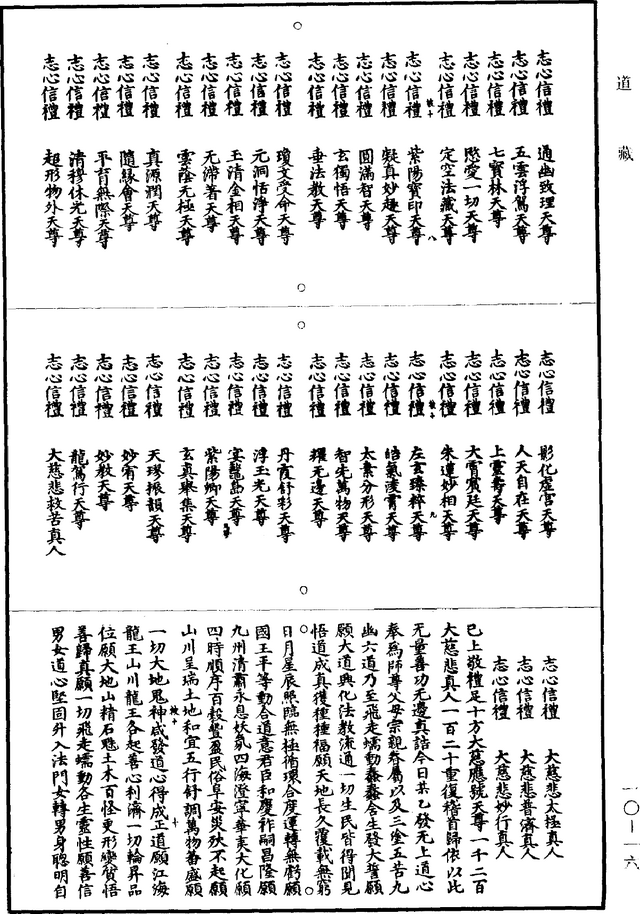 道藏
志心信禮　通幽致理天尊
志心信禮　五雲浮駕天尊
志心信禮　七寶林天尊
志心信禮　愍愛一切天尊
志心信禮　定空法藏天尊
志心信禮　紫陽寶印天尊
志心信禮　凝真妙趣天尊
志心信禮　圓滿智天尊
志心信禮　玄獨悟天尊
志心信禮　垂法教天尊
志心信禮　瓊文受命天尊
志心信禮　元洞恬淨天尊
志心信禮　王清金相天尊
志心信禮　无滯著天尊
志心信禮　雲蔭无極天尊
志心信禮　真源潤天尊
志心信禮　隨緣會天尊
志心信禮　平育無際天尊
志心信禮　清穆休光天尊
志心信禮　超形物外天尊
志心信禮　影化虛官天尊
志心信禮　人天自在天尊
志心信禮　上靈壽天尊
志心信禮　大霄寳廷天尊
志心信禮　朱連妙相天尊
志心信禮　左玄臻粹天尊
志心信禮　皓氣淩霄天尊
志心信禮　太素分形天尊
志心信禮　智先萬物天尊
志心信禮　環无邊天尊
志心信禮　丹霞舒彩天尊
志心信禮　浮玉光天尊
志心信禮　宴龍島天尊
志心信禮　紫陽卿天尊
志心信禮　玄真舉集天尊
志心信禮　天璆振韻天尊
志心信禮　妙宥天尊
志心信禮　妙教天尊
志心信禮　龍駕行天尊
志心信禮　大慈悲救苦真人
志心信禮　大慈悲太極真人
志心信禮　大慈悲普濟真人
志心信禮　大慈悲妙行真人
已上敬禮足十方大慈應號天尊一千二百
大慈悲真人一百二十重復稽首歸依以此
无量善功无邊真誥今日某乙發无上道心
奉為師尊父母宗親眷屬以及三塗五苦九
幽六道乃至飛走蠕動蠢蠢含生發大誓願
願大道興化法教流通一切生民皆得聞見
悟道成真獲種種福願天地長久覆載無窮
日月星辰照臨無極循環合度運轉無虧願
國王平等動合道意君臣和慶祚嗣昌隆願
九州清肅永息妖氛四海澄寧華夷大化願
四時順序百穀豐盈民俗早安災殃不起願
山川呈瑞土地和宜五行舒調萬物蕃盛願
一切大地鬼神咸發道心得成正道願江海
龍王山川龍王各起善心利濟一切輪昇品
位願大地山精石魅土木百怪更形變質悟
善歸真願一切飛走蠕動各生靈性願善信
男女道心堅固升入法門女轉男身聰明自
一〇—一六